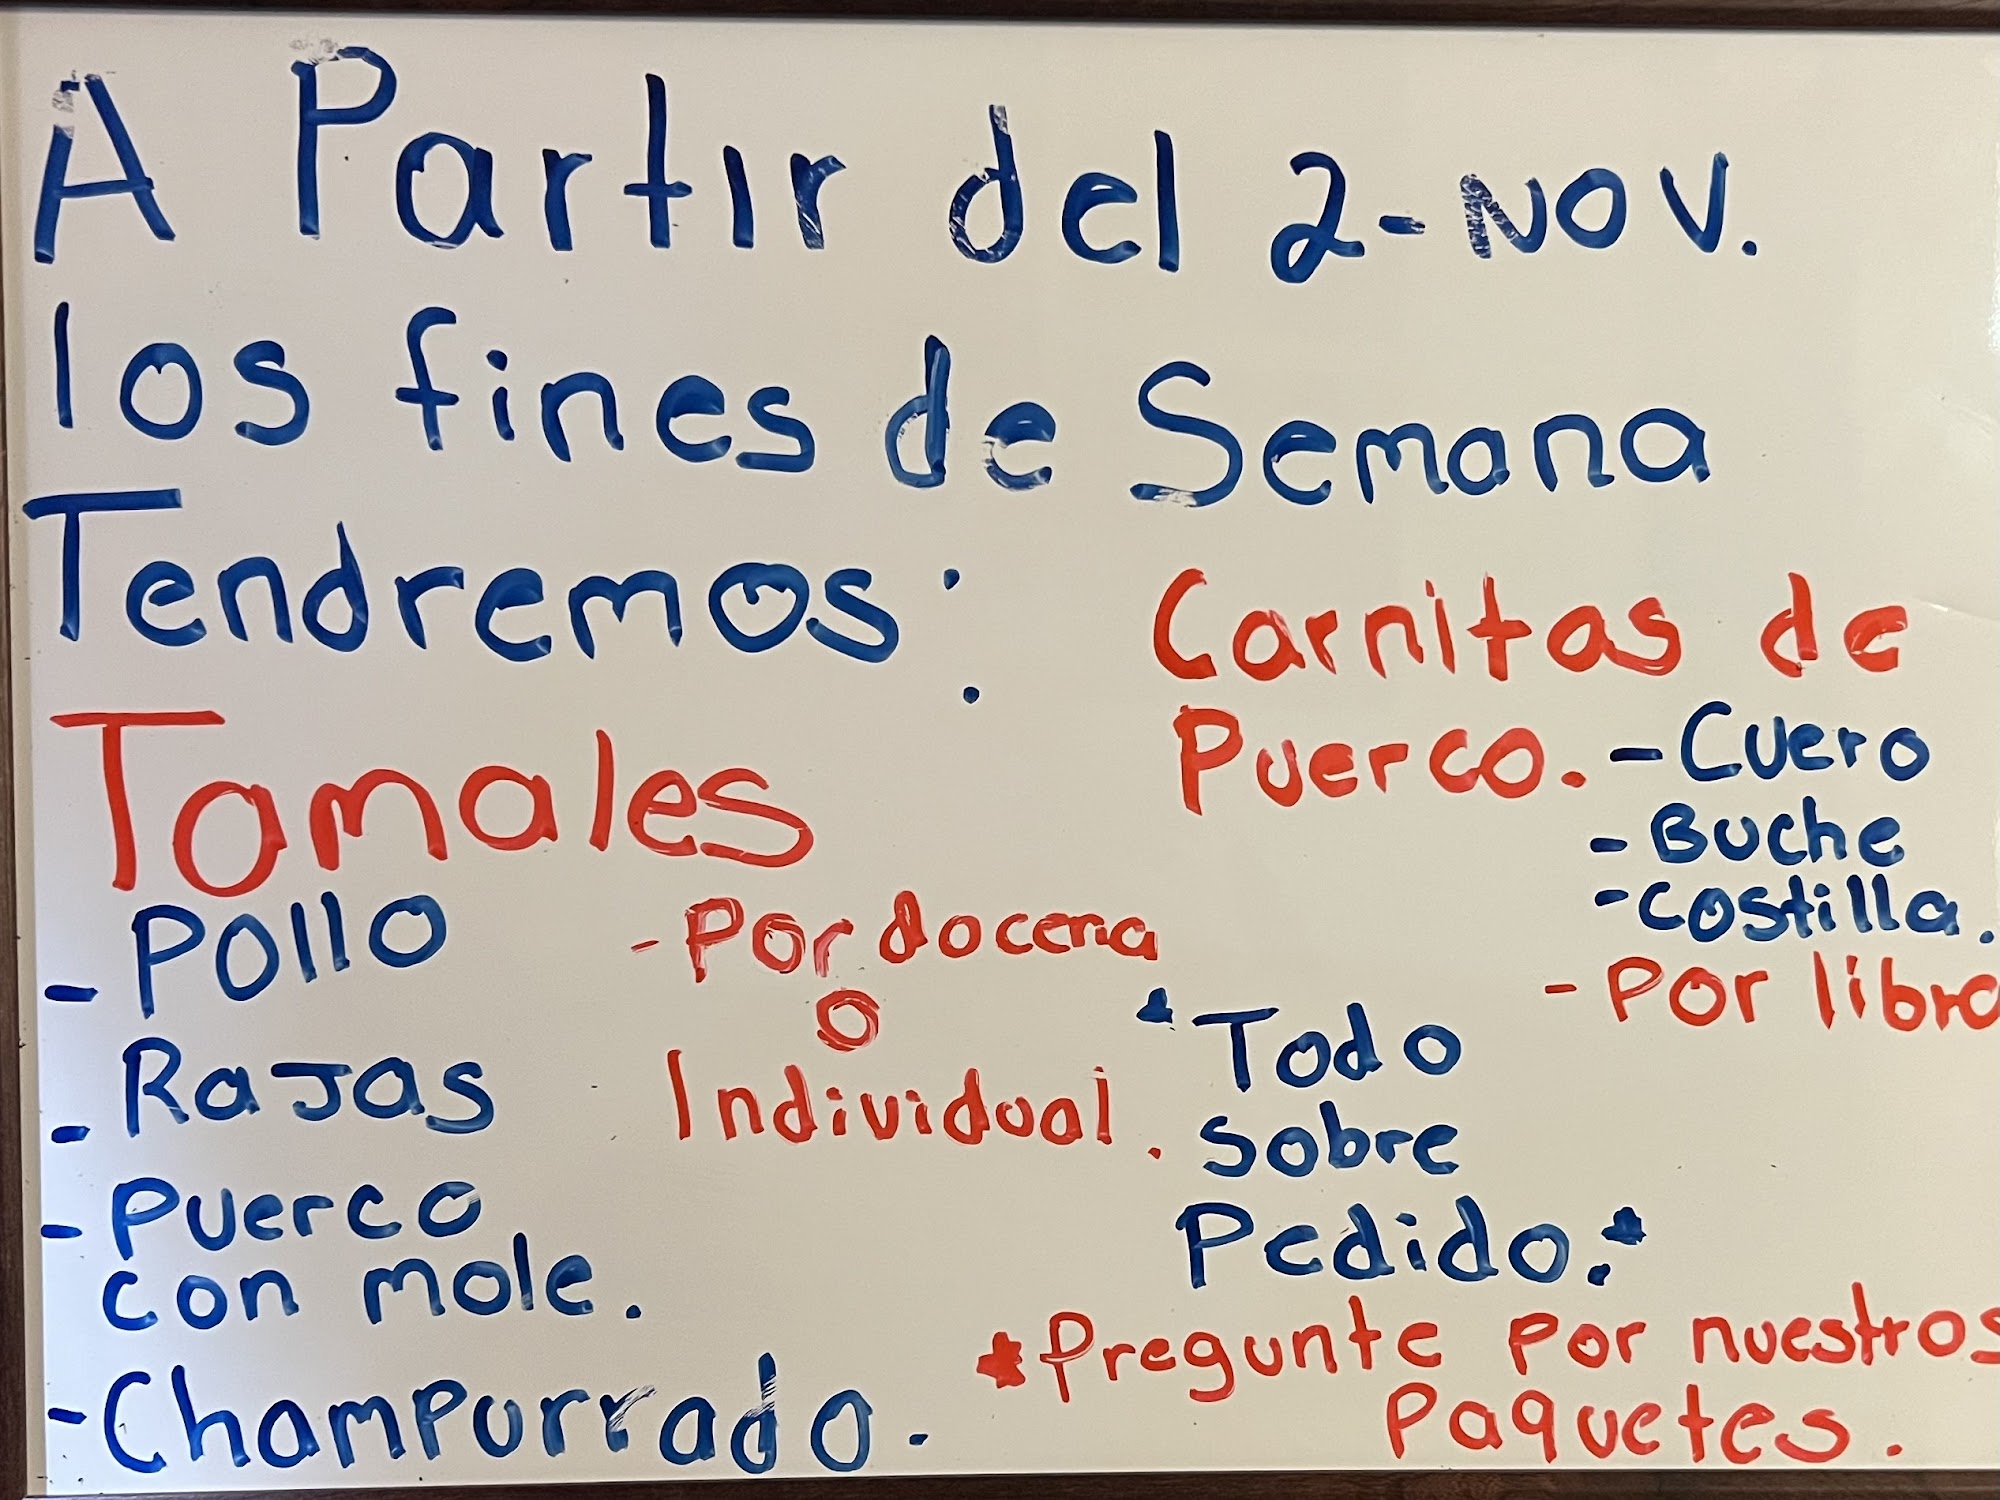 A Partir del 2-Nov.
los fines de Semana
Tendremos:
Tamales
- Pollo
- Rajas
- Puerco
con mole.
- Champurrado.
- Por docena
o
Individual.
Carnitas de
Puerco. - Cuero
- Buche
- Costilla.
- Por libra
* Todo
sobre
Pedido. *
* Pregunte por nuestros
Paquetes.